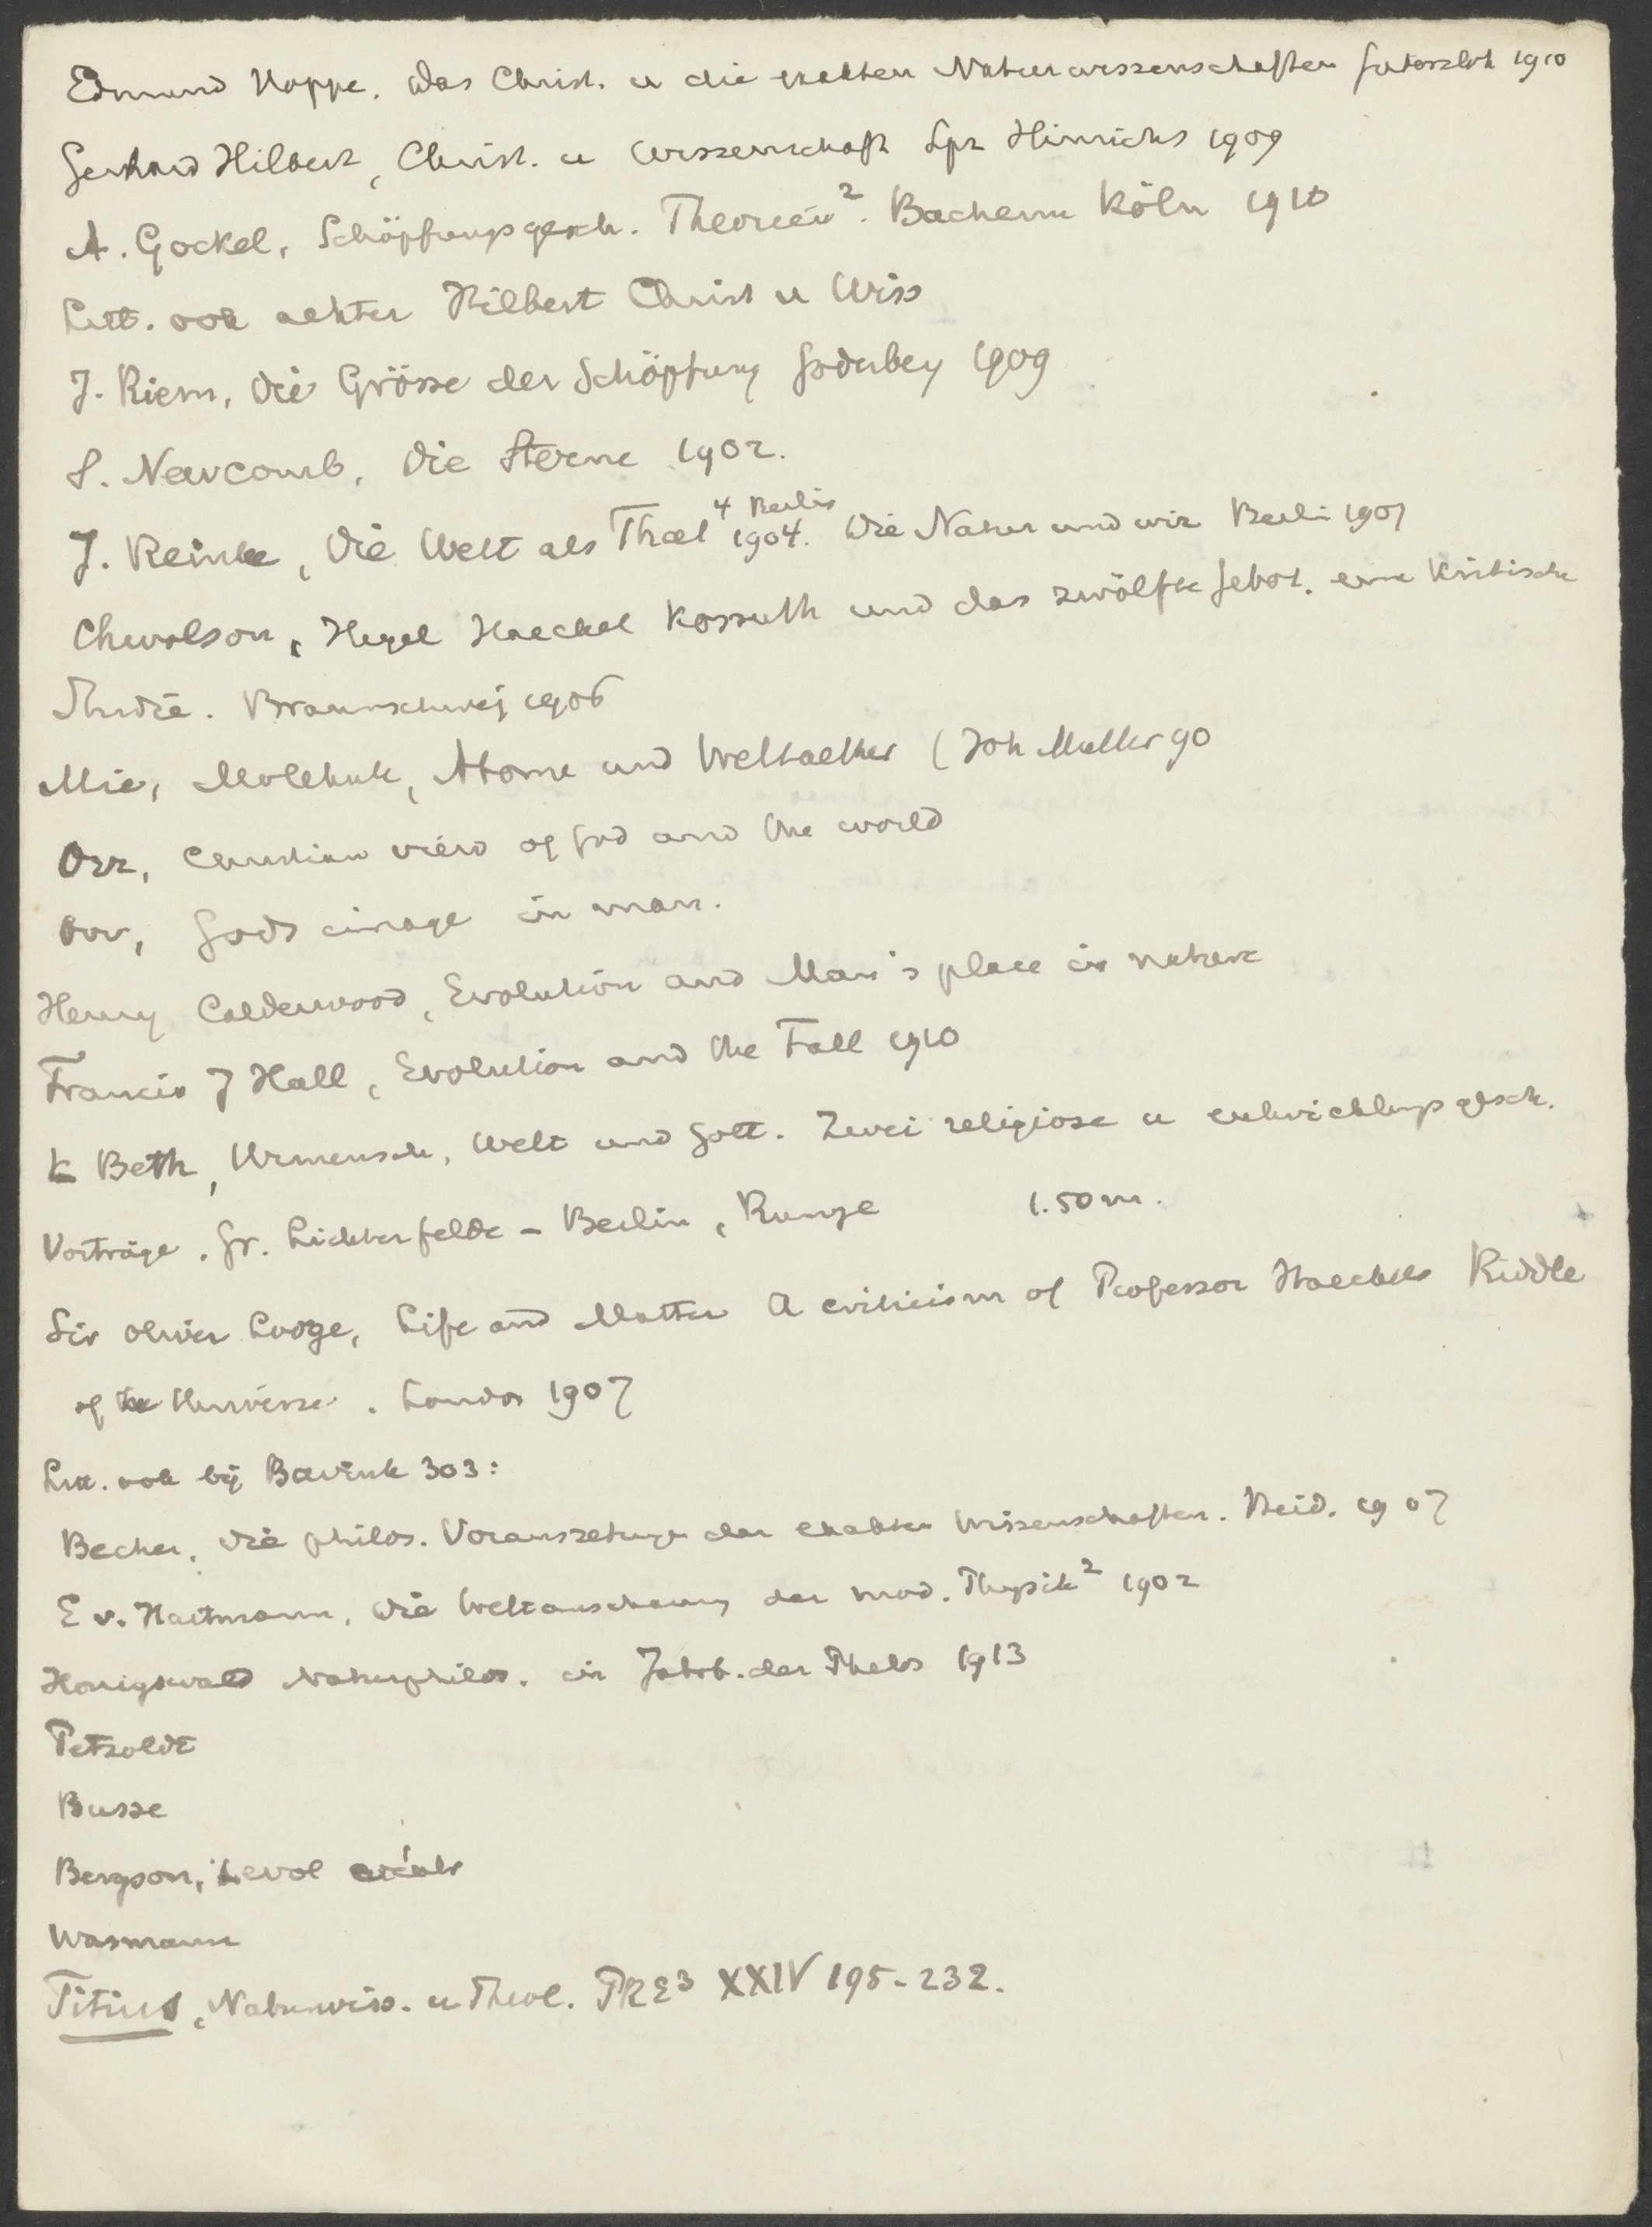 Edmund Hoppe. Das Christ. u die exakten Naturwissenschaften Gütersloh 1910
Gerhard Hilbert, Christ. u Wissenschaft Lpz Hinrichs 1909
A. Gockel, Schöpfungsgesch. Theorien². Bachem Köln 1910
Litt. ook achter Hilbert Christ u Wiss
J. Riem, Die Grösse der Schöpfung 1909
S. Newcomb, Die Sterne 1902.
J. Reinke, Die Welt als That⁴ Berlin 1904. Die Natur und wir Berlin 1907
Chwolson, Hegel Haeckel Kossuth und das zwölfte Gebot. eine Kritische
Studie. Braunschweig 1906
Mie, Moleküle, Atome und Weltaether (Joh Muller 90
Orr, Christian view of God and the world
Orr, Gods image in man.
Henry Calderwood, Evolution and Man's place in nature
Francis J Hall, Evolution and the Fall 1910
K Beth, Urmensch, Welt und Gott. Zwei religiose u entwicklungsgesch.
Vorträge. Gr. Lichterfelde - Berlin, Runge 1.50 m.
Sir Oliver Lodge, Life and Matter A criticism of Professor Haeckels Riddle
of the Universe. London 1907
Litt. ook bij Bavink 303:
Becher, Die philos. Voraussetzungen der exakten Wissenschaften. 1907
E v. Hartmann, Die Weltanschauung der mod. Physik² 1902
Honigswald Naturphilos. in Jahrb. der Philos 1913
Petzoldt
Busse
Bergson, L'evol créatr
Wasmann
Titius, Naturwiss. u Theol. PRE³ XXIV 195-232.